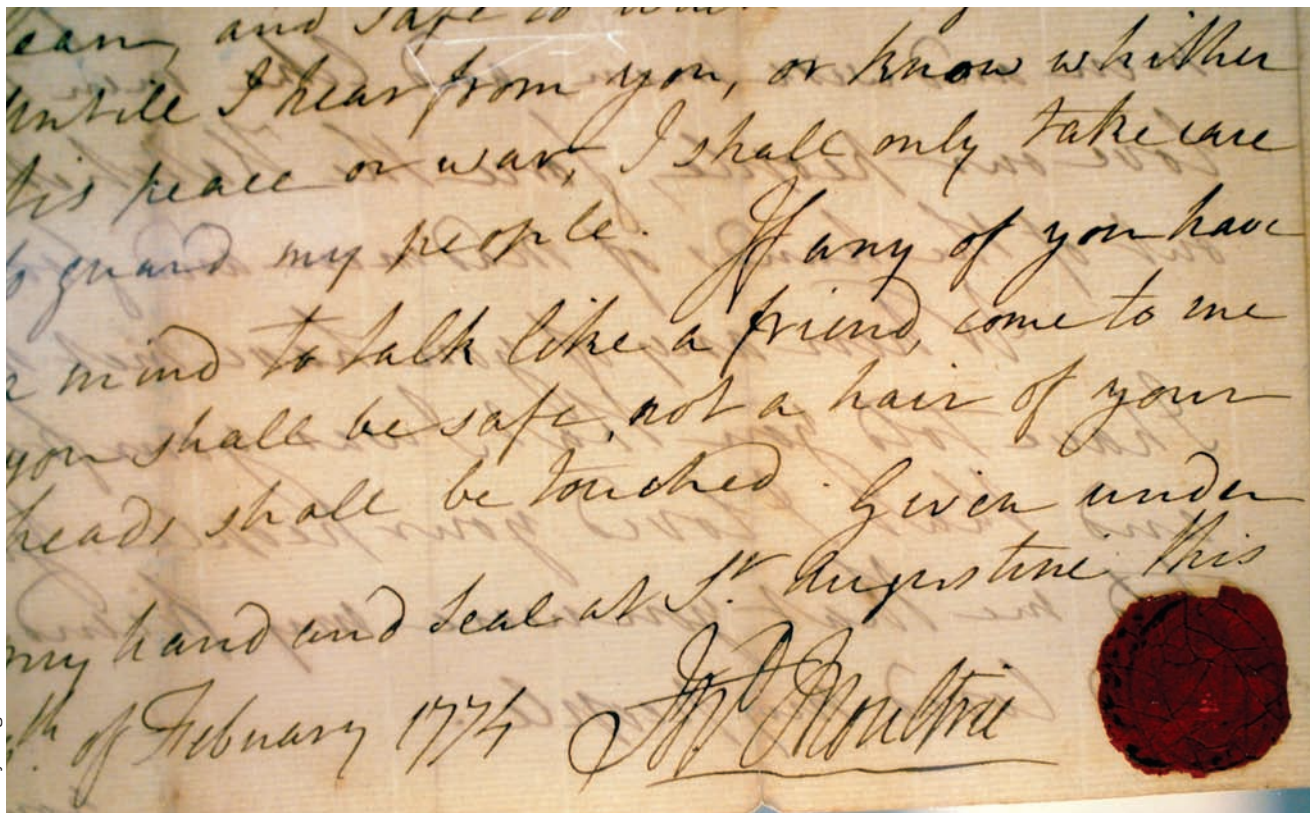 and safe to
untill I hear from you, or know whither
tis peace or war, I shall only take care
to guard my people. If any of you have
a mind to talk like a friend, come to me
you shall be safe, not a hair of your
heads shall be touched. Given under
my hand and seal at St. Augustine this
th. of February 1774 Jno. Moultrie